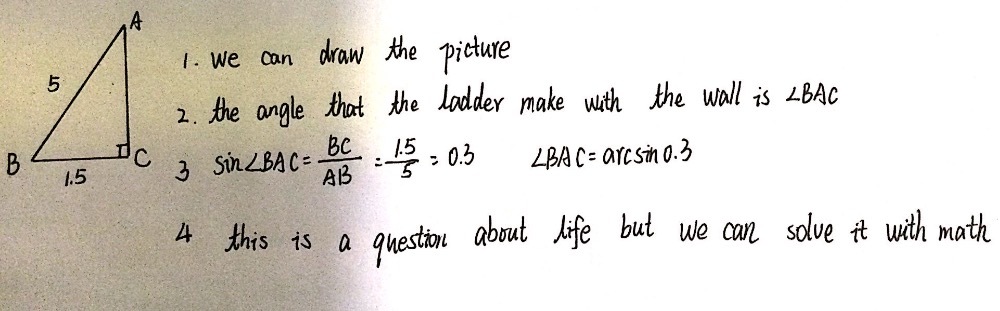 A
5
B
C
1.5
1. we can draw the picture
2. the angle that the ladder make with the wall is ∠BAC
3 sin∠BAC = BC/AB = 1.5/5 = 0.3 ∠BAC = arcsin 0.3
4 this is a question about life but we can solve it with math